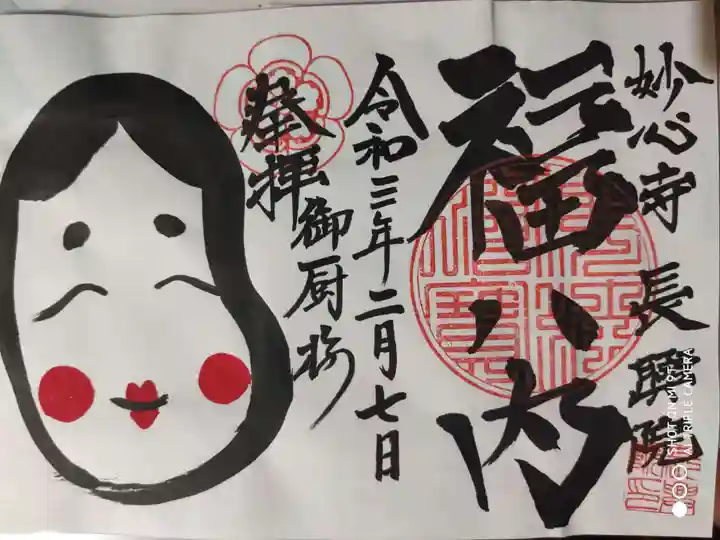 妙心寺 長興院
福ハ内
令和三年二月七日
奉拝
御厨揚
SHOT ON MI 9T
AI TRIPLE CAMERA